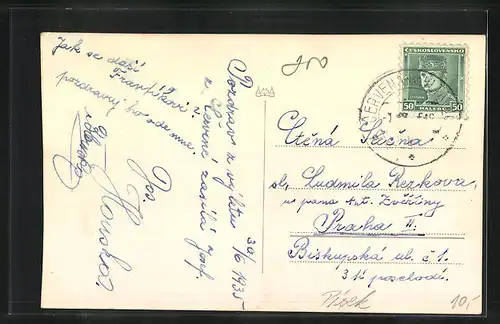 Jak se daří
Frantíkovi?
pozdravuj ho ode mne.
30/6 1935
Pozdrav z výletu
z Červené zasílá Josf.
Jos
Hanska
ČESKOSLOVENSKO
50 50
HALÉŘŮ
ČERVENÁ
Ctěná Slečna
sl. Ludmila Rezkova
u pana Ant. Zvěřiny
Praha II.
Biskupská ul. č. 1.
3tí poschodí.
Písek
10,-